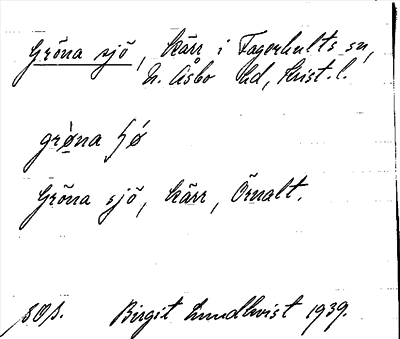 Gröna sjö, kärr i Fagerhults sn,
N. Åsbo hd, Krist. l.
grø̀na ɧø
Gröna sjö, kärr, Örnalt.
SOS. Birgit Lundkvist 1939.